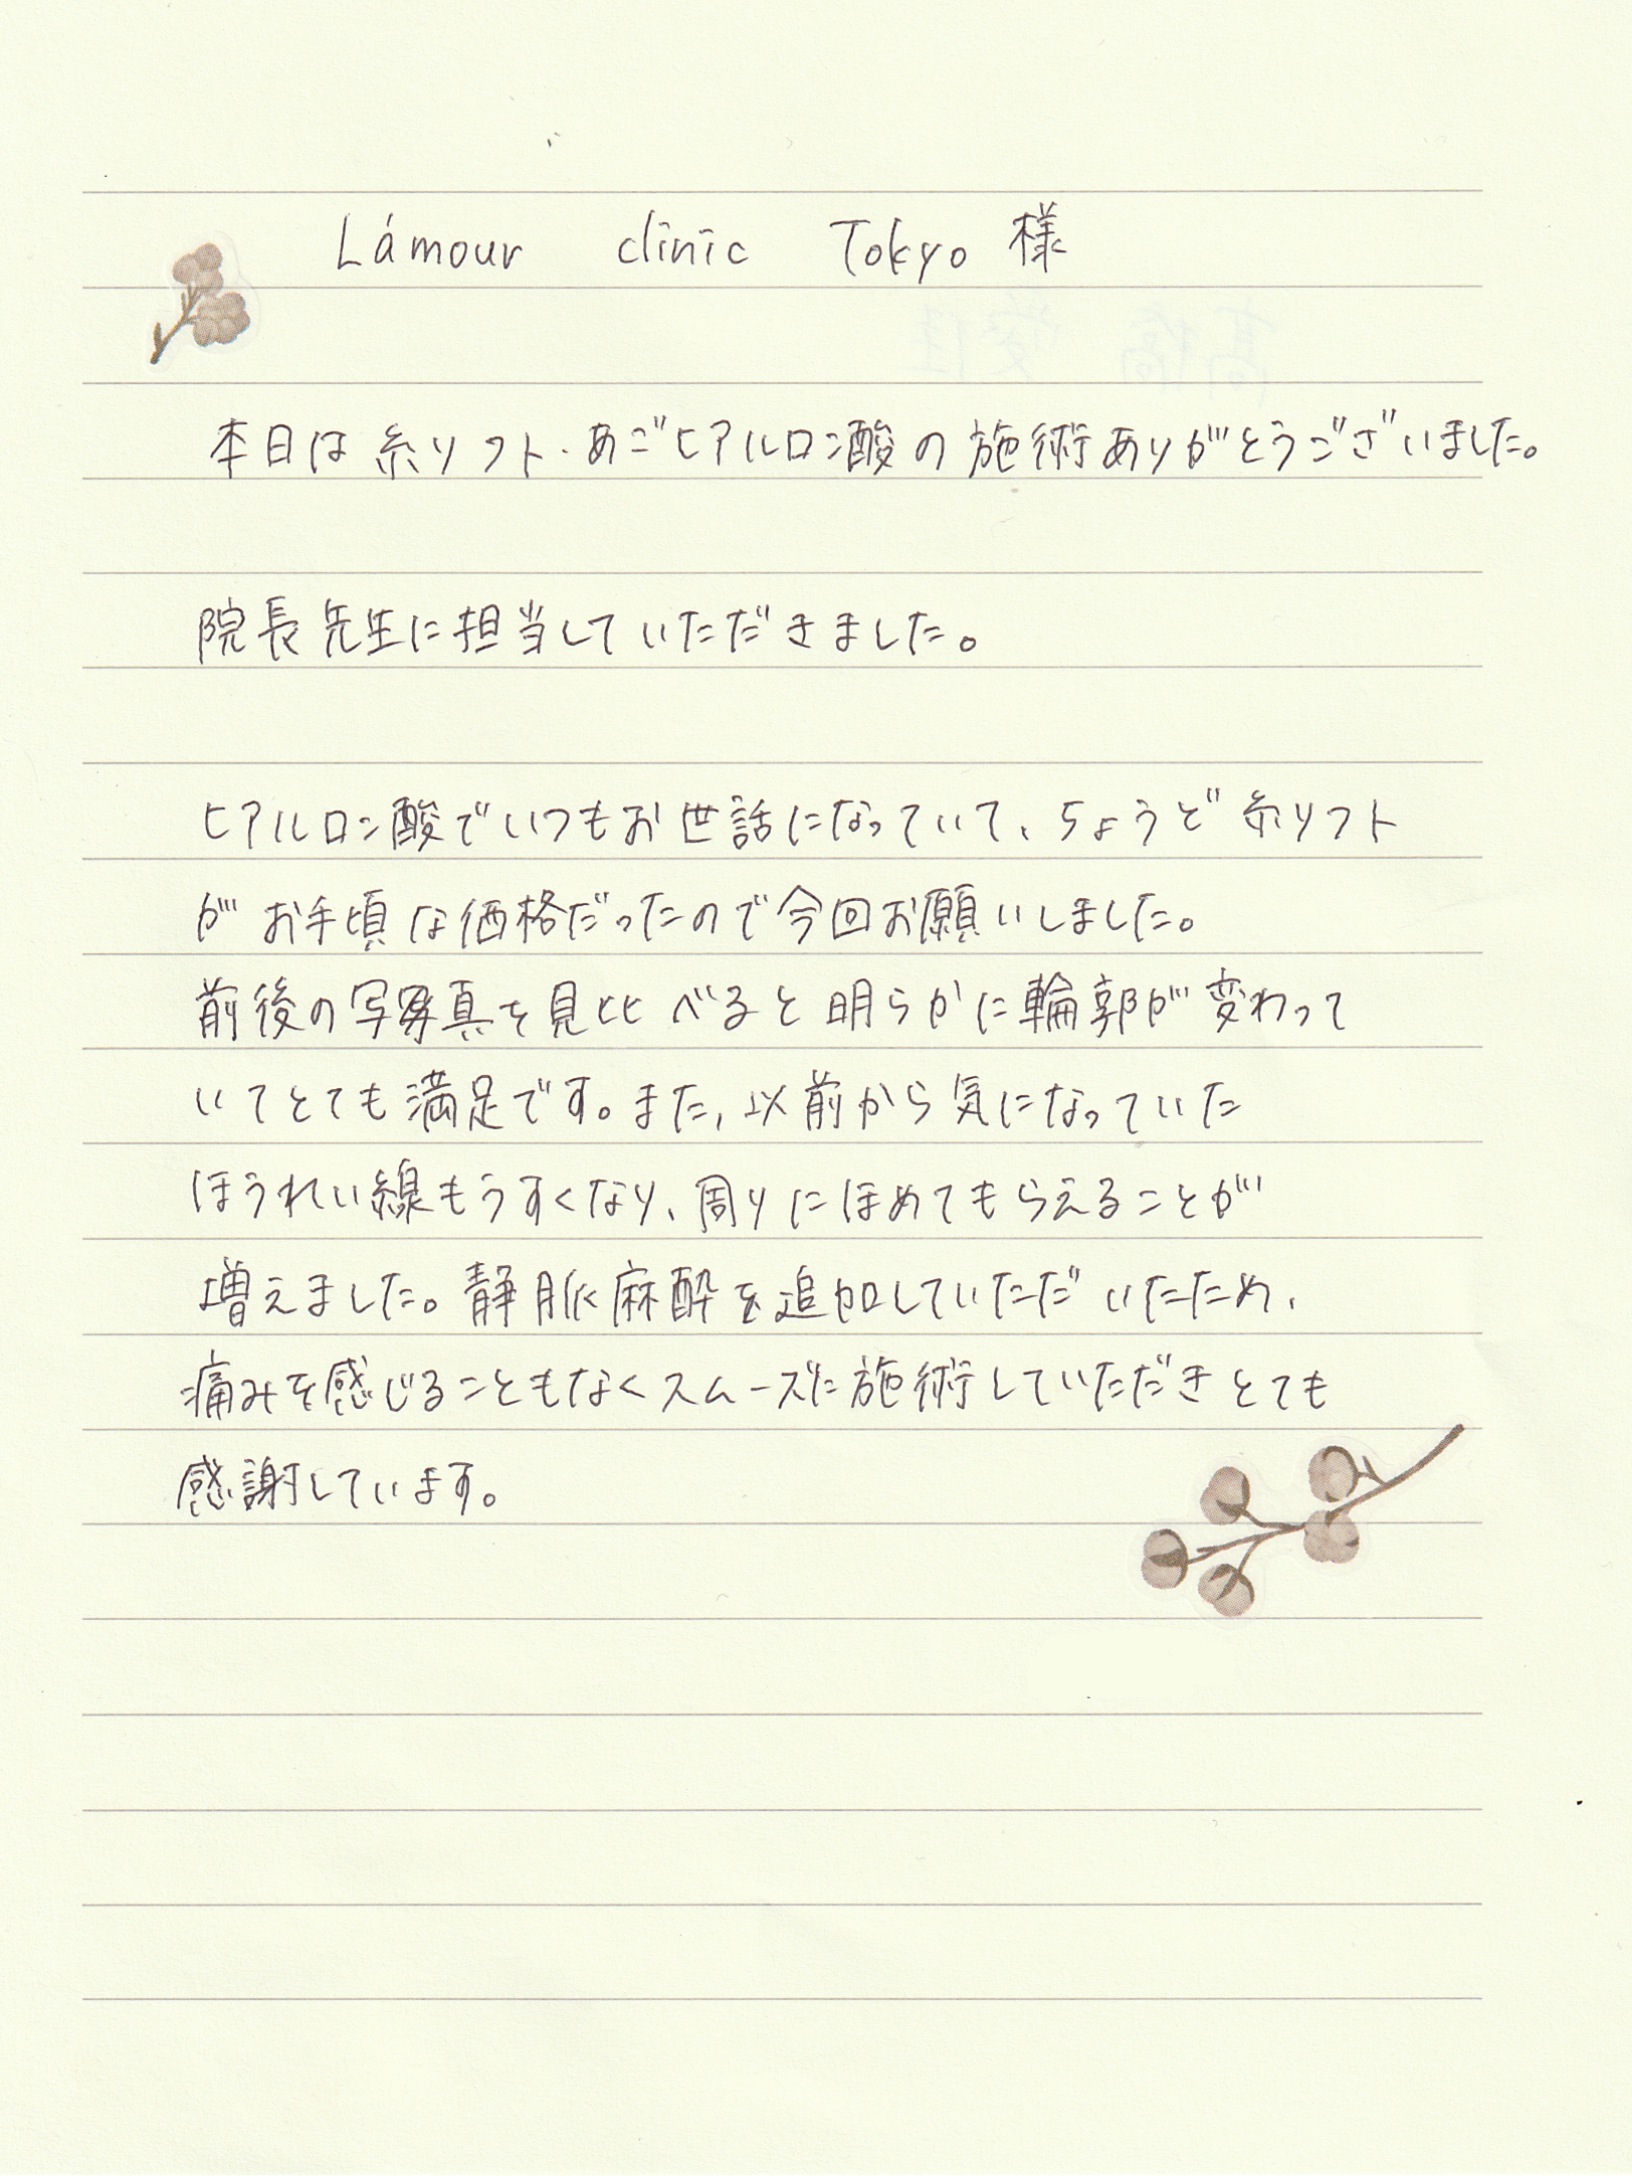 Lámour clinic Tokyo 様
本日は糸リフト・あごヒアルロン酸の施術ありがとうございました。
院長先生に担当していただきました。
ヒアルロン酸でいつもお世話になっていて、ちょうど糸リフト
がお手頃な価格だったので今回お願いしました。
前後の写真を見比べると明らかに輪郭が変わって
いてとても満足です。また、以前から気になっていた
ほうれい線もうすくなり、周りにほめてもらえることが
増えました。静脈麻酔を追加していただいたため、
痛みを感じることもなくスムーズに施術していただきとても
感謝しています。